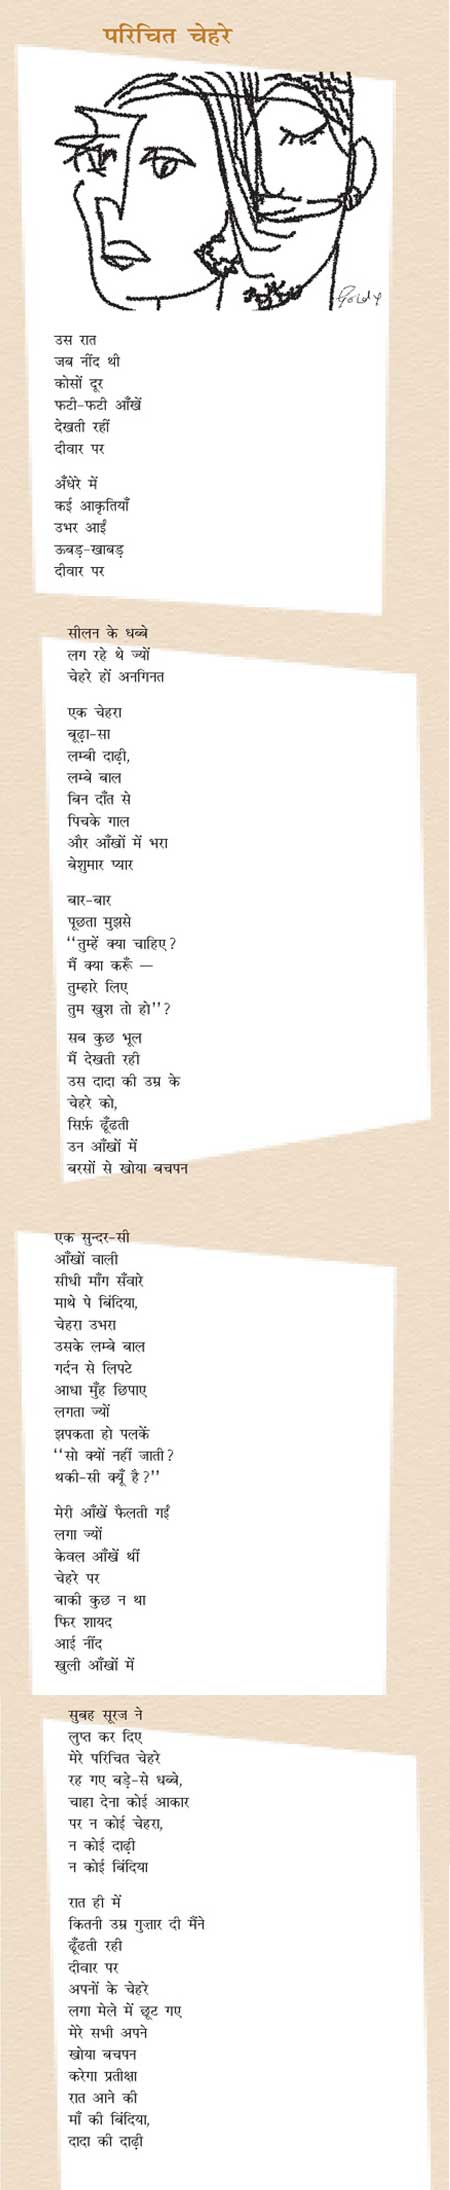 परिचित चेहरे
Goldy
उस रात
जब नींद थी
कोसों दूर
फटी-फटी आँखें
देखती रहीं
दीवार पर
अँधेरे में
कई आकृतियाँ
उभर आईं
ऊबड़-खाबड़
दीवार पर
सीलन के धब्बे
लग रहे थे ज्यों
चेहरे हों अनगिनत
एक चेहरा
बूढ़ा-सा
लम्बी दाढ़ी,
लम्बे बाल
बिन दाँत से
पिचके गाल
और आँखों में भरा
बेशुमार प्यार
बार-बार
पूछता मुझसे
“तुम्हें क्या चाहिए?
मैं क्या करूँ —
तुम्हारे लिए
तुम खुश तो हो”?
सब कुछ भूल
मैं देखती रही
उस दादा की उम्र के
चेहरे को,
सिर्फ़ ढूँढती
उन आँखों में
बरसों से खोया बचपन
एक सुन्दर-सी
आँखों वाली
सीधी माँग सँवारे
माथे पे बिंदिया,
चेहरा उभरा
उसके लम्बे बाल
गर्दन से लिपटे
आधा मुँह छिपाए
लगता ज्यों
झपकता हो पलकें
“सो क्यों नहीं जाती?
थकी-सी क्यूँ है?”
मेरी आँखें फैलती गईं
लगा ज्यों
केवल आँखें थीं
चेहरे पर
बाकी कुछ न था
फिर शायद
आई नींद
खुली आँखों में
सुबह सूरज ने
लुप्त कर दिए
मेरे परिचित चेहरे
रह गए बड़े-से धब्बे,
चाहा देना कोई आकार
पर न कोई चेहरा,
न कोई दाढ़ी
न कोई बिंदिया
रात ही में
कितनी उम्र गुज़ार दी मैंने
ढूँढती रही
दीवार पर
अपनों के चेहरे
लगा मेले में छूट गए
मेरे सभी अपने
खोया बचपन
करेगा प्रतीक्षा
रात आने की
माँ की बिंदिया,
दादा की दाढ़ी